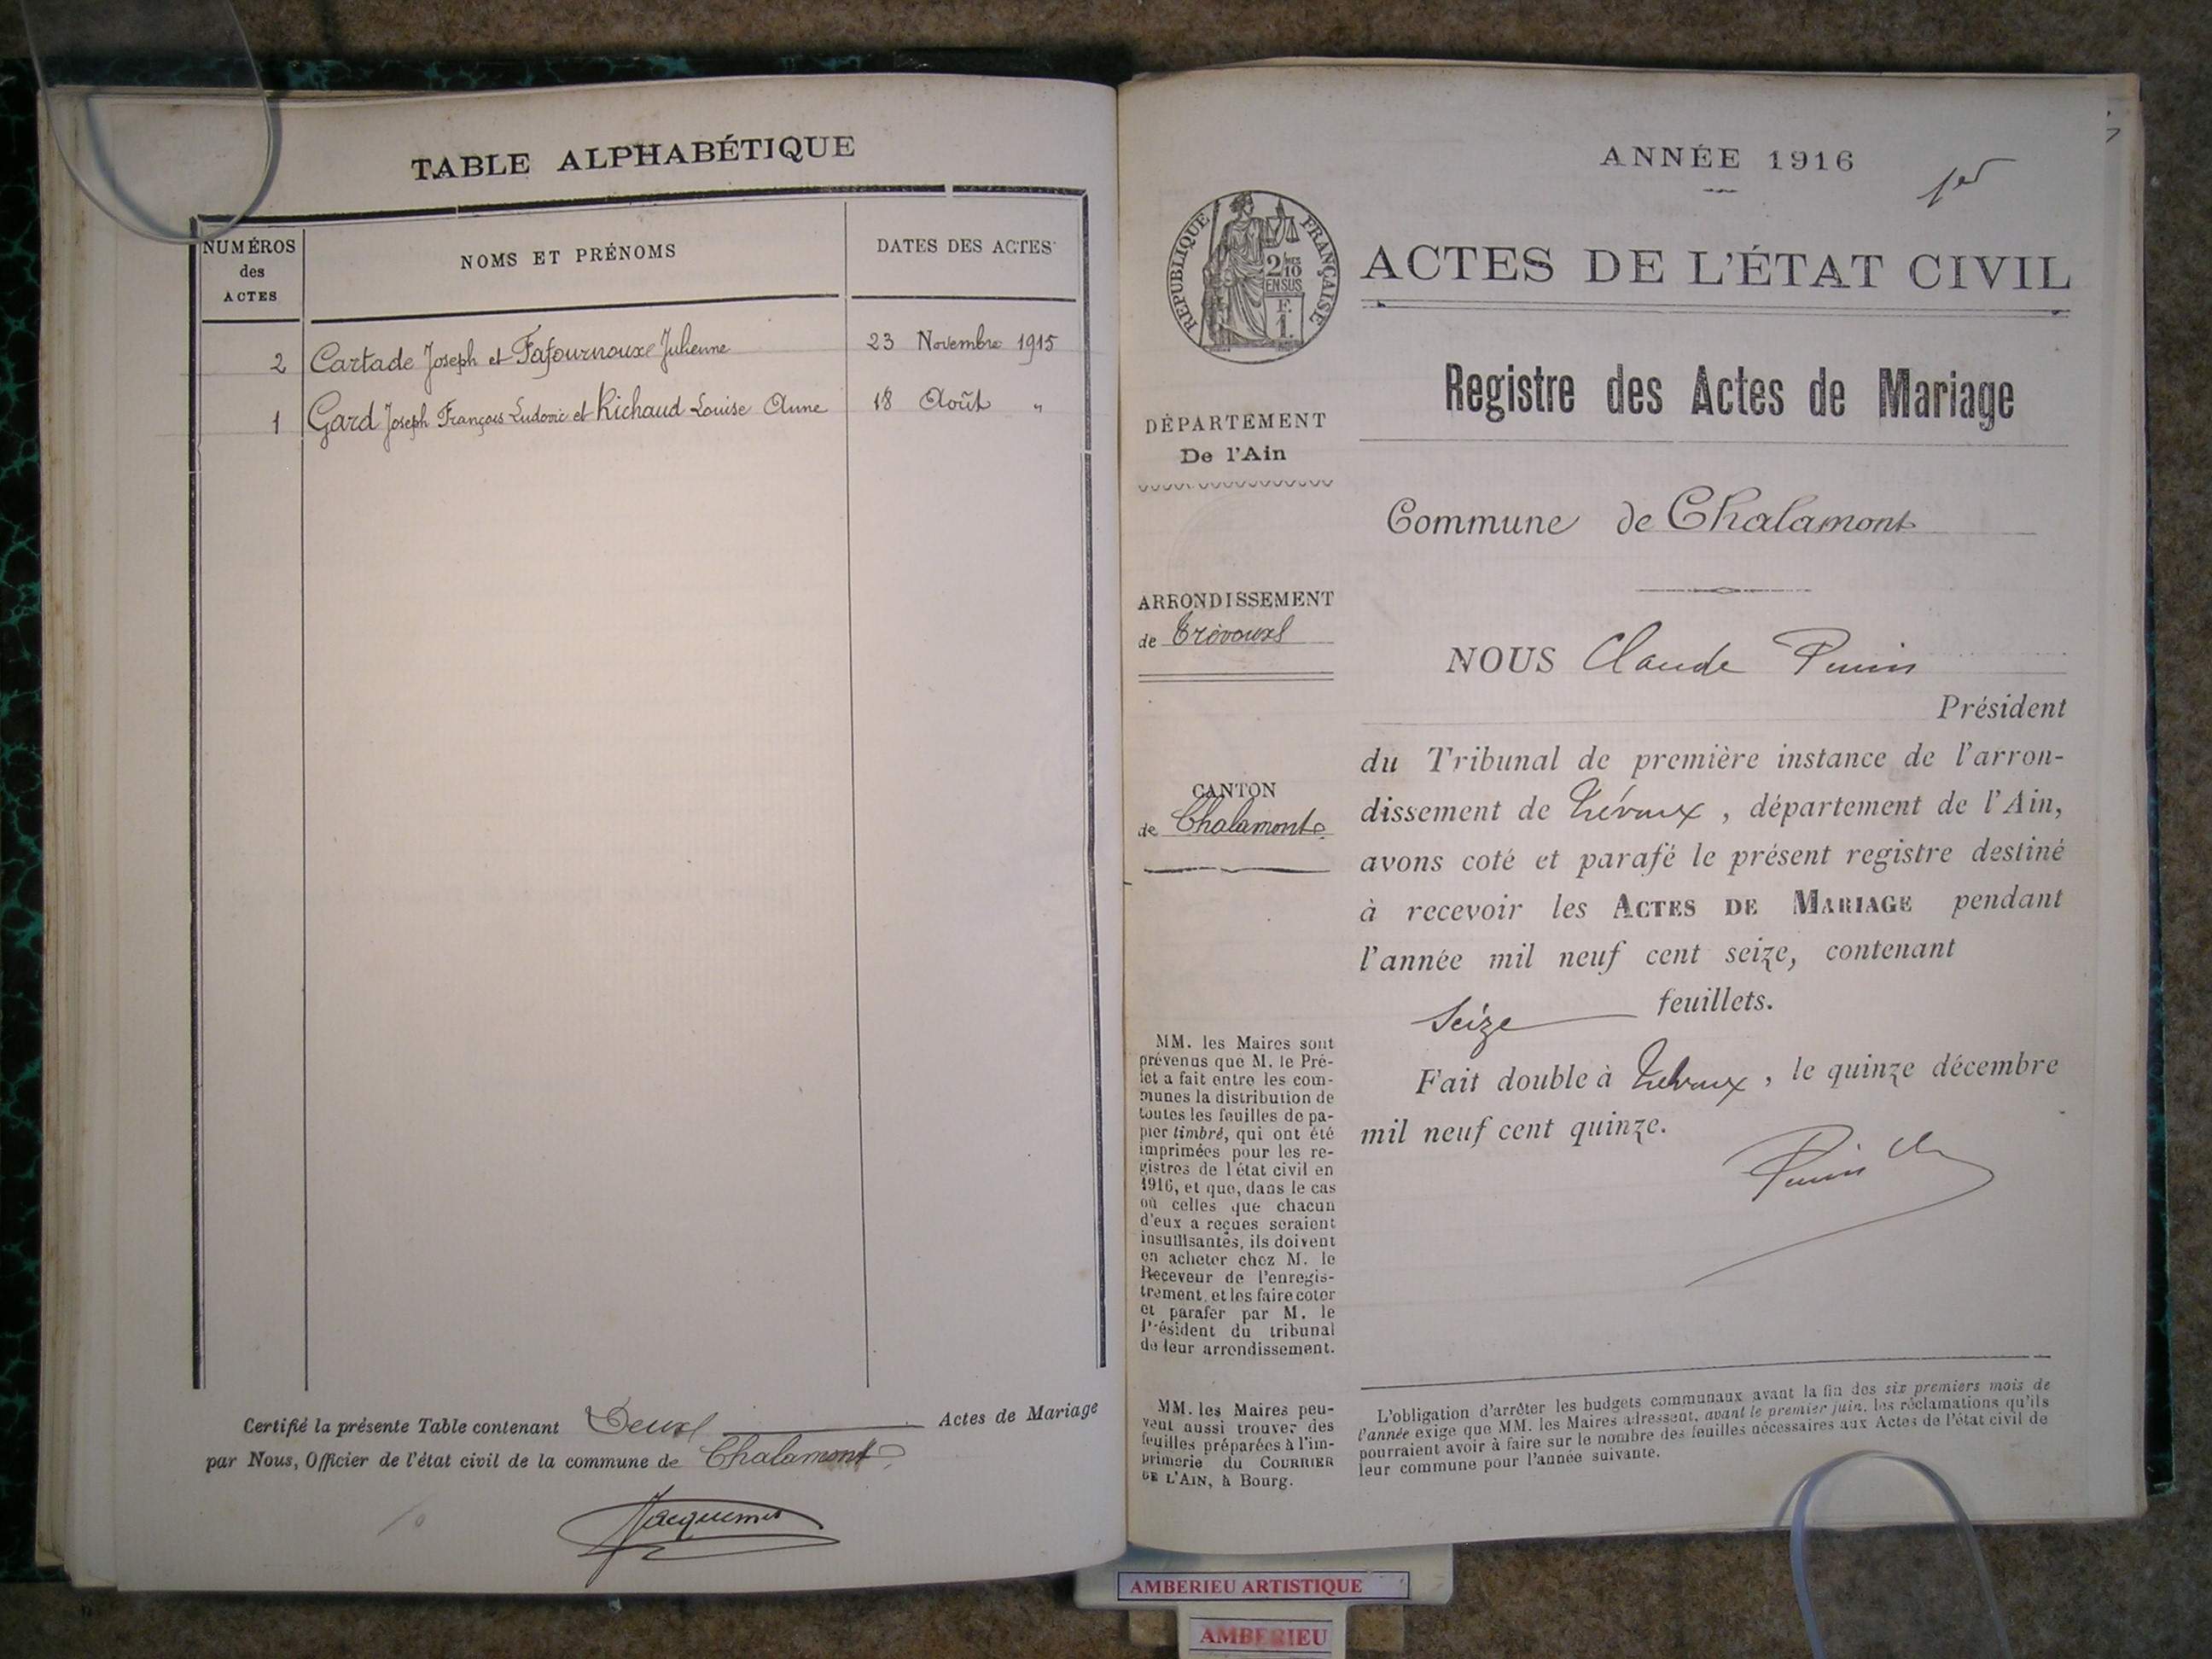 TABLE ALPHABÉTIQUE
NUMÉROS
des
ACTES
NOMS ET PRÉNOMS
DATES DES ACTES
2 Cartade Joseph et Fafournoux Julienne 23 Novembre 1915
1 Gard Joseph François Ludovic et Richaud Louise Anne 18 Août "
Certifié la présente Table contenant Deux Actes de Mariage
par Nous, Officier de l'état civil de la commune de Chalamont
Jacquemet
ANNÉE 1916
1er
RÉPUBLIQUE FRANÇAISE
2/10
EN SUS
F.
1.
ACTES DE L'ÉTAT CIVIL
Registre des Actes de Mariage
DÉPARTEMENT
De l'Ain
Commune de Chalamont
ARRONDISSEMENT
de Trévoux
CANTON
de Chalamont
NOUS Claude
Président
du Tribunal de première instance de l'arron-
dissement de Trévoux, département de l'Ain,
avons coté et parafé le présent registre destiné
à recevoir les ACTES DE MARIAGE pendant
l'année mil neuf cent seize, contenant
Seize feuillets.
Fait double à Trévoux, le quinze décembre
mil neuf cent quinze.
MM. les Maires sont
prévenus que M. le Pré-
fet a fait entre les com-
munes la distribution de
toutes les feuilles de pa-
pier timbré, qui ont été
imprimées pour les re-
gistres de l'état civil en
1916, et que, dans le cas
où celles que chacun
d'eux a reçues seraient
insuffisantes, ils doivent
en acheter chez M. le
Receveur de l'enregis-
trement, et les faire coter
et parafer par M. le
Président du tribunal
de leur arrondissement.
MM. les Maires peu-
vent aussi trouver des
feuilles préparées à l'im-
primerie du COURRIER
DE L'AIN, à Bourg.
L'obligation d'arrêter les budgets communaux avant la fin des six premiers mois de
l'année exige que MM. les Maires adressent, avant le premier juin, les réclamations qu'ils
pourraient avoir à faire sur le nombre des feuilles nécessaires aux Actes de l'état civil de
leur commune pour l'année suivante.
AMBERIEU ARTISTIQUE
AMBERIEU